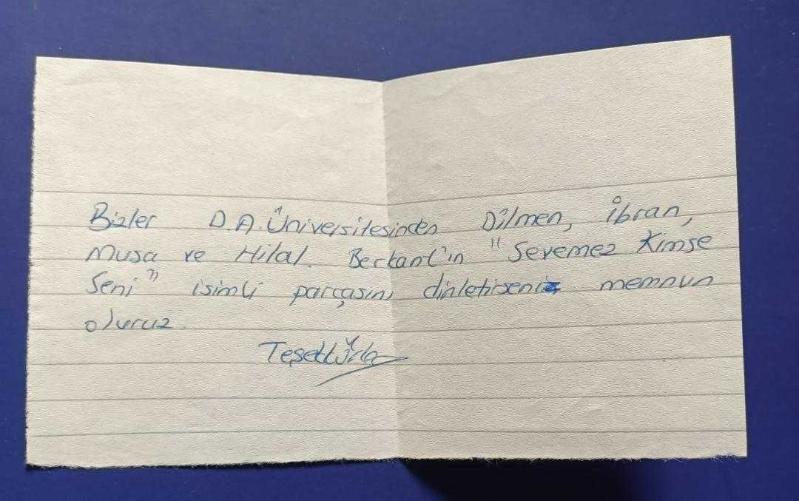 Bizler D.A. Üniversitesinden Dilmen, İbran,
Musa ve Hilal. Berkant'ın "Sevemez Kimse
Seni" isimli parçasını dinletirseniz memnun
oluruz.
Teşekkürler